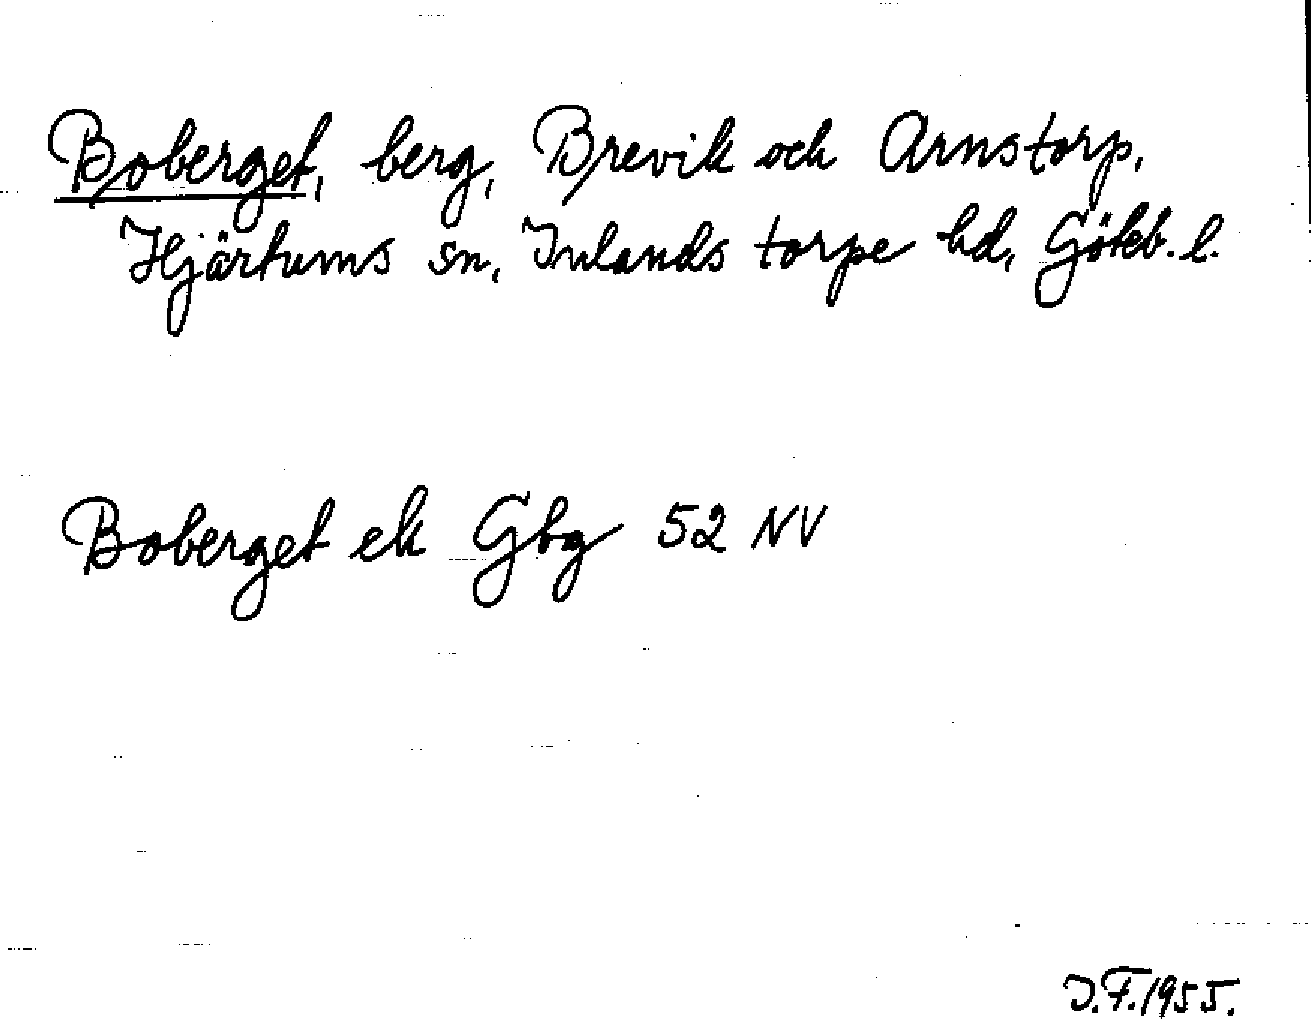 Boberget, berg, Brevik och Arnstorp,
Hjärtums sn, Inlands torpe hd, Göteb. l.
Boberget ek Gbg 52 NV
J.F. 1955.